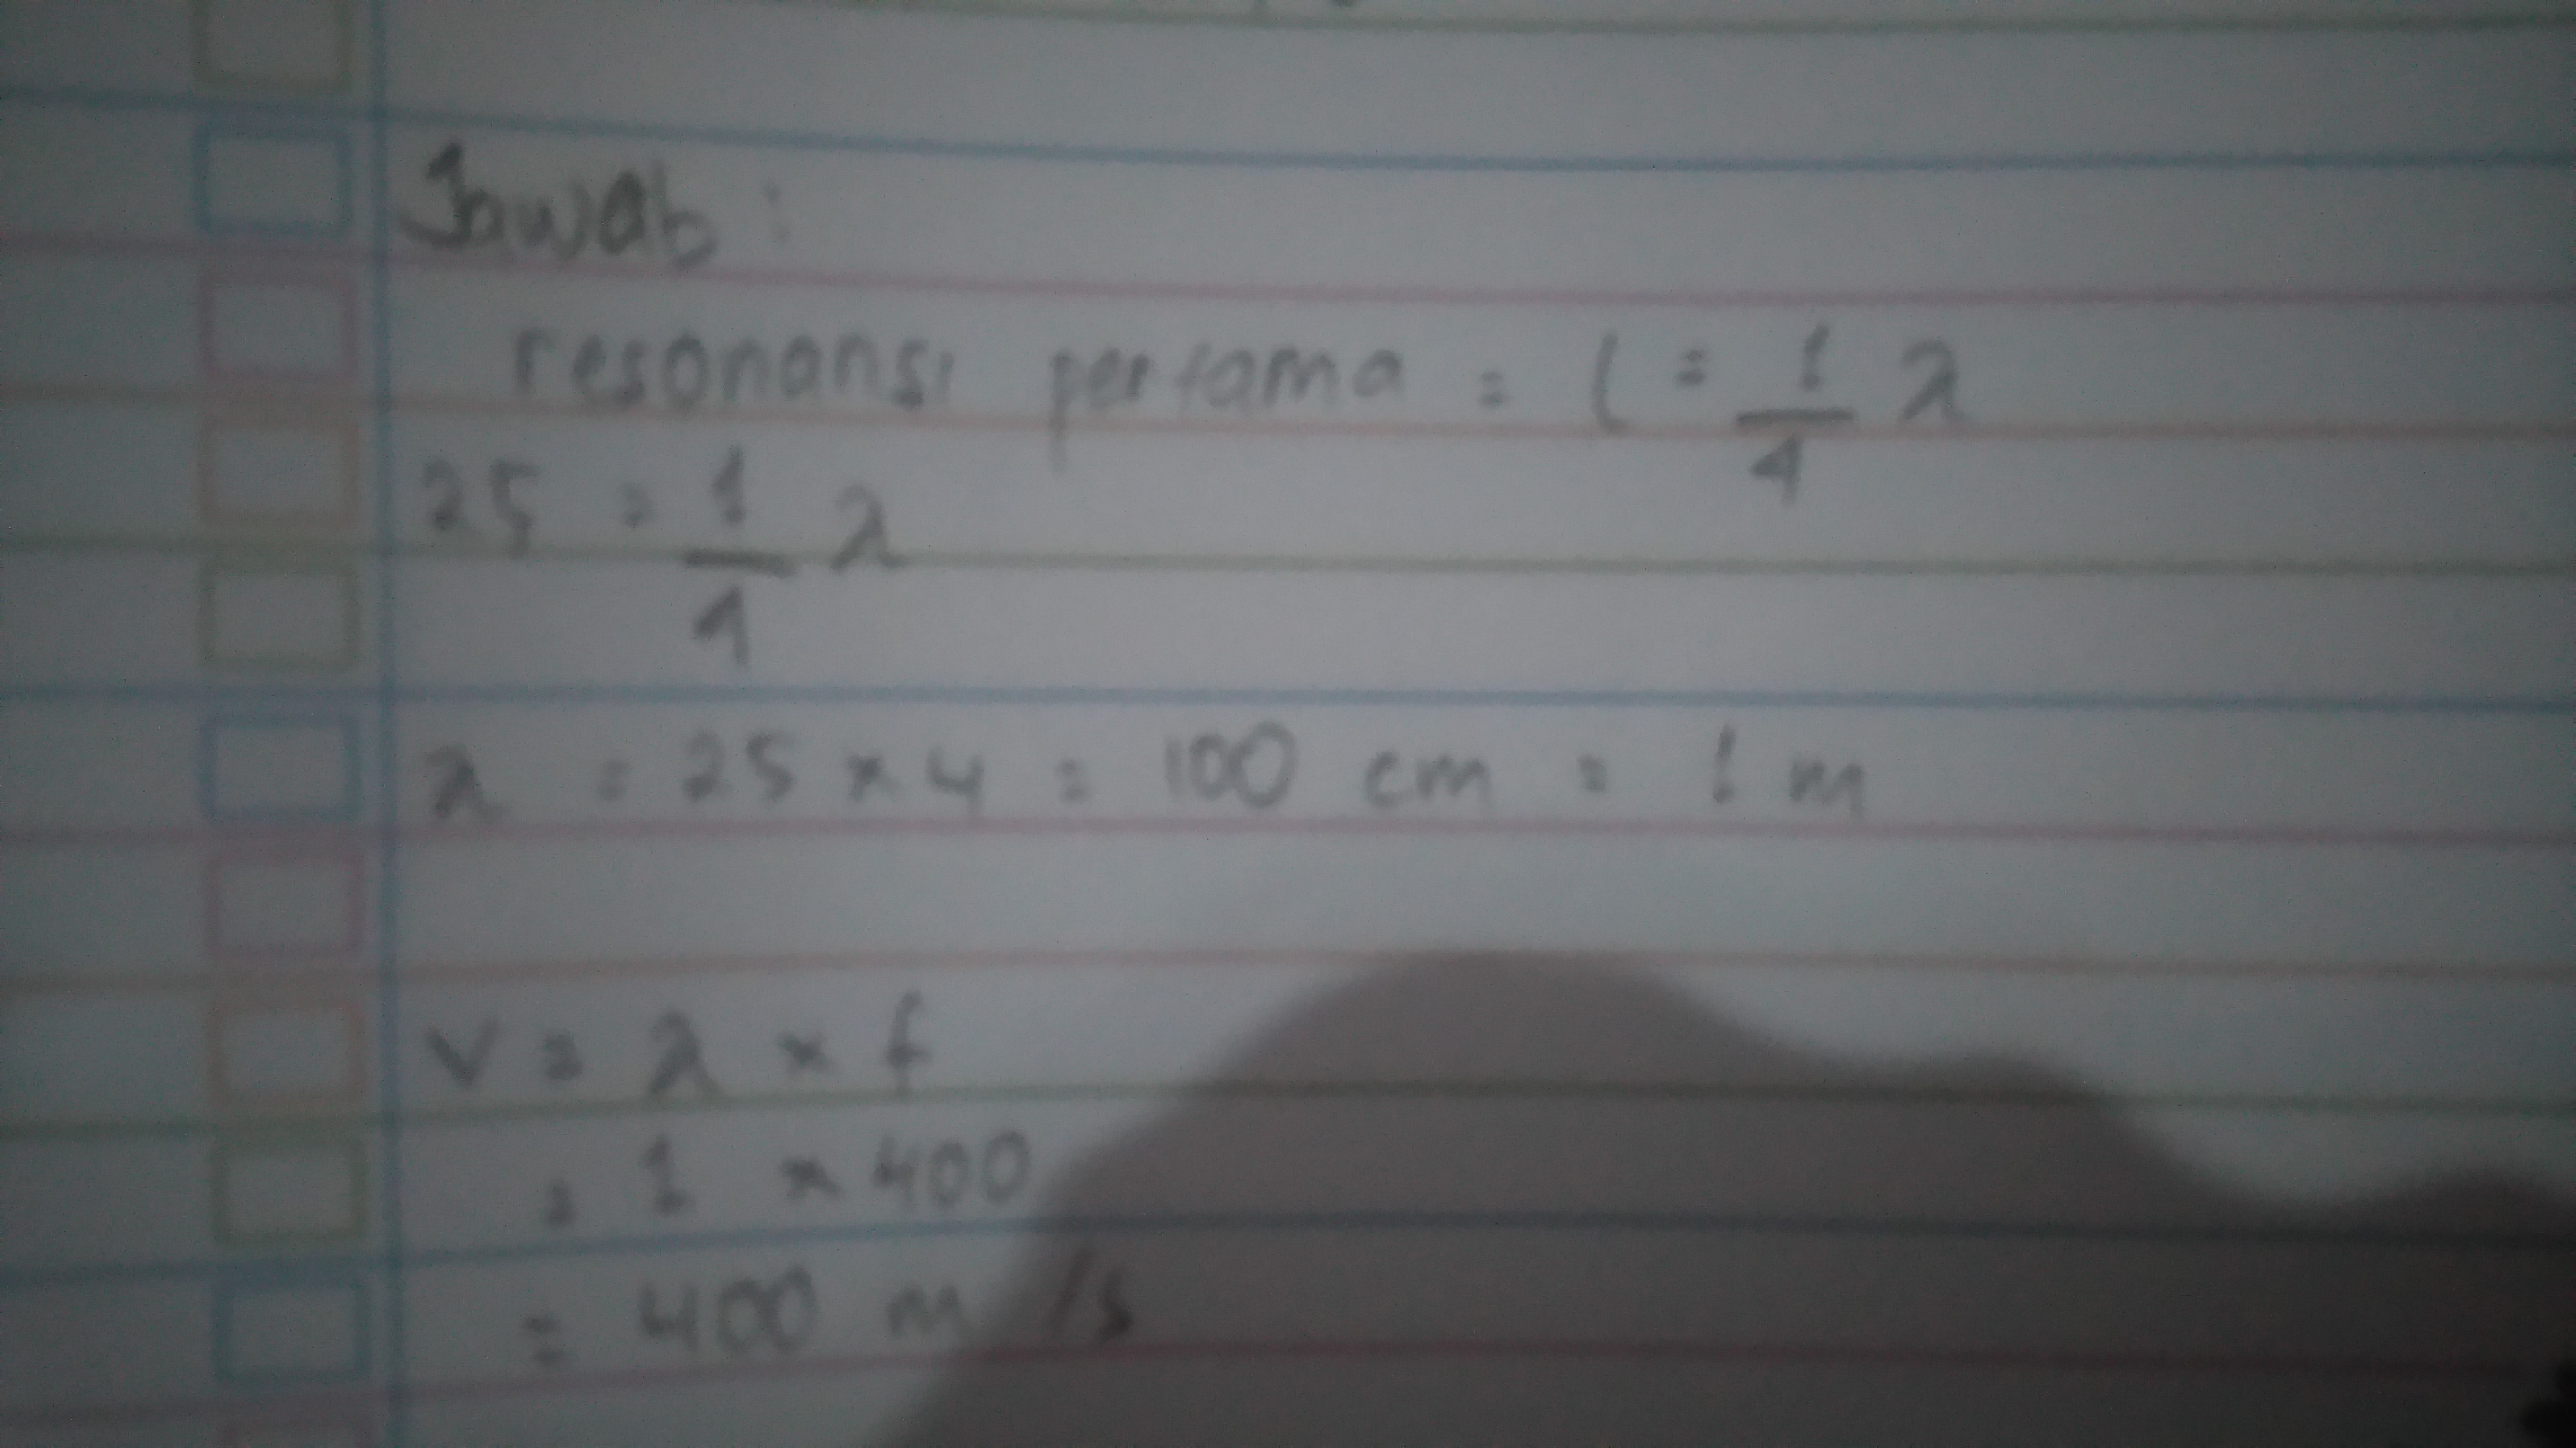 Jawab :
resonansi pertama = l = 1/4 λ
25 = 1/4 λ
λ = 25 × 4 = 100 cm = 1 m
v = λ × f
= 1 × 400
= 400 m/s